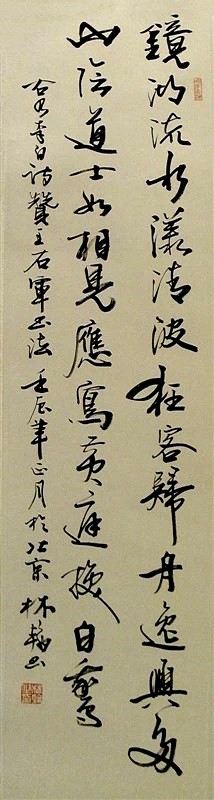 鏡湖流水漾清波狂客歸舟逸興多
山陰道士如相見應寫黃庭換白鵝
右李白詩贊王右軍书法壬辰年正月於北京林书